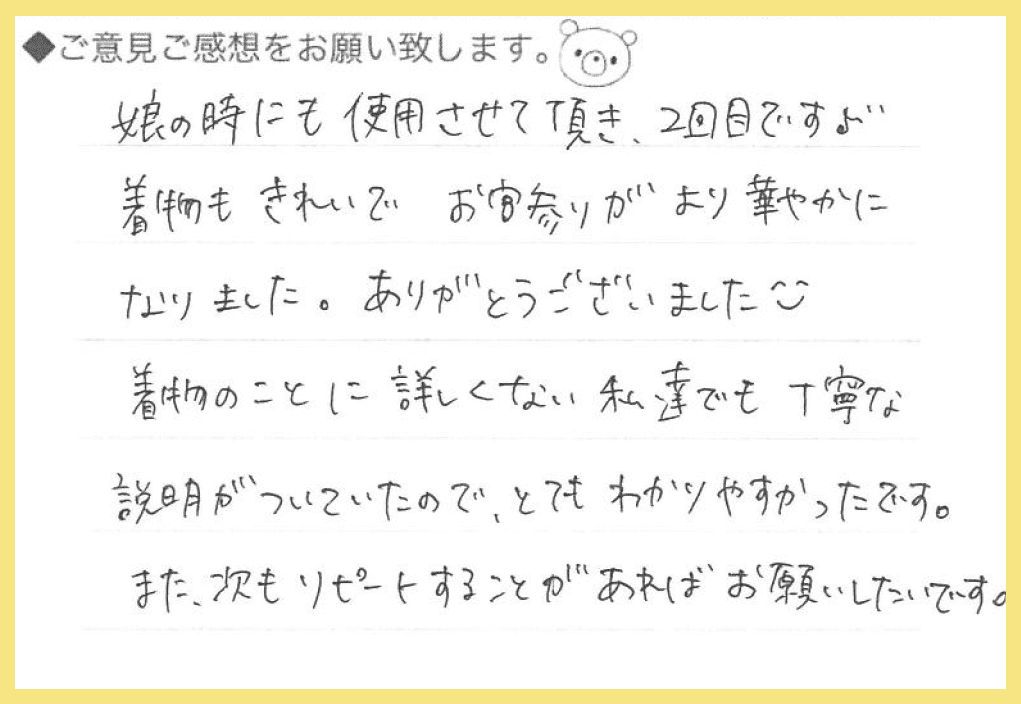 ◆ご意見ご感想をお願い致します。
娘の時にも使用させて頂き、2回目です♪
着物もきれいで お宮参りがより華やかに
なりました。ありがとうございました
着物のことに詳しくない私達でも丁寧な
説明がついていたので、とてもわかりやすかったです。
また、次もリピートすることがあればお願いしたいです。